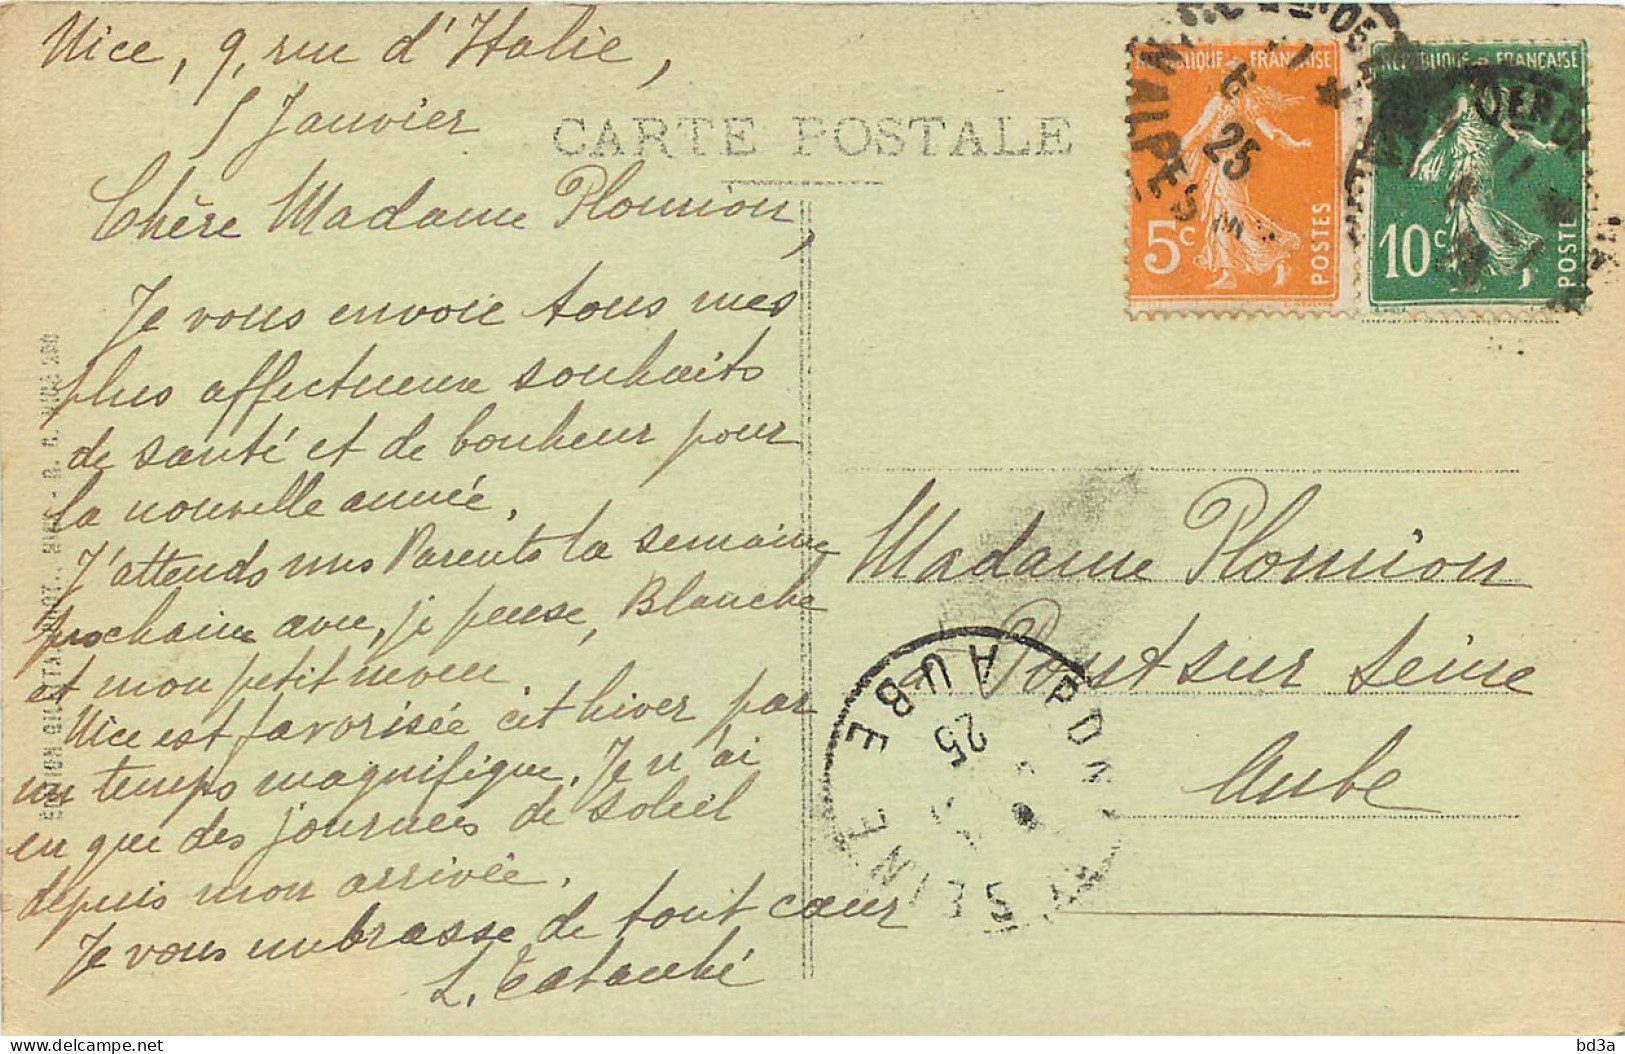 Nice, 9, rue d'Italie,
5 Janvier
CARTE POSTALE
Chère Madame Plomion,
Je vous envoie tous mes
plus affectueux souhaits
de santé et de bonheur pour
la nouvelle année.
J'attends mes Parents la semaine
prochaine avec, je pense, Blanche
et mon petit neveu.
Nice est favorisée cet hiver par
un temps magnifique. Je n'ai
eu que des journées de soleil
depuis mon arrivée.
Je vous embrasse de tout cœur
REPUBLIQUE FRANÇAISE
5c
POSTES
REPUBLIQUE FRANÇAISE
10c
POSTES
25
Madame Plomion
à Pont sur Seine
Aube
PONT
SEINE
AUBE
25